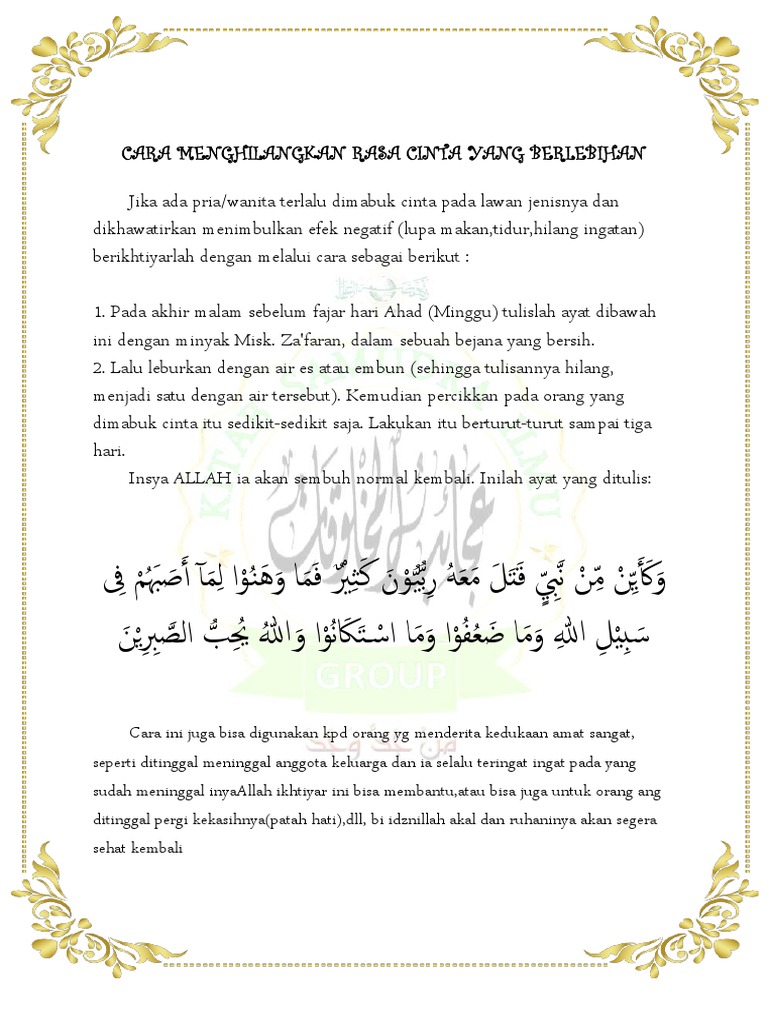 CARA MENGHILANGKAN RASA CINTA YANG BERLEBIHAN
Jika ada pria/wanita terlalu dimabuk cinta pada lawan jenisnya dan
dikhawatirkan menimbulkan efek negatif (lupa makan,tidur,hilang ingatan)
berikhtiyarlah dengan melalui cara sebagai berikut :
1. Pada akhir malam sebelum fajar hari Ahad (Minggu) tulislah ayat dibawah
ini dengan minyak Misk. Za'faran, dalam sebuah bejana yang bersih.
2. Lalu leburkan dengan air es atau embun (sehingga tulisannya hilang,
menjadi satu dengan air tersebut). Kemudian percikkan pada orang yang
dimabuk cinta itu sedikit-sedikit saja. Lakukan itu berturut-turut sampai tiga
hari.
Insya ALLAH ia akan sembuh normal kembali. Inilah ayat yang ditulis:
KITAB SAMUDRA ILMU
عجائب المخلوقات
وَكَأَيِّنْ مِّنْ نَّبِيٍّ قَتَلَ مَعَهُ رِبِّيُّوْنَ كَثِيْرٌ فَمَا وَهَنُوْا لِمَآ أَصَبَهُمْ فِى
سَبِيْلِ اللهِ وَمَا ضَعُفُوْا وَمَا اسْتَكَانُوْا وَاللهُ يُحِبُّ الصَّبِرِيْنَ
GROUP
من جد وجد
Cara ini juga bisa digunakan kpd orang yg menderita kedukaan amat sangat,
seperti ditinggal meninggal anggota keluarga dan ia selalu teringat ingat pada yang
sudah meninggal inyaAllah ikhtiyar ini bisa membantu,atau bisa juga untuk orang ang
ditinggal pergi kekasihnya(patah hati),dll, bi idznillah akal dan ruhaninya akan segera
sehat kembali